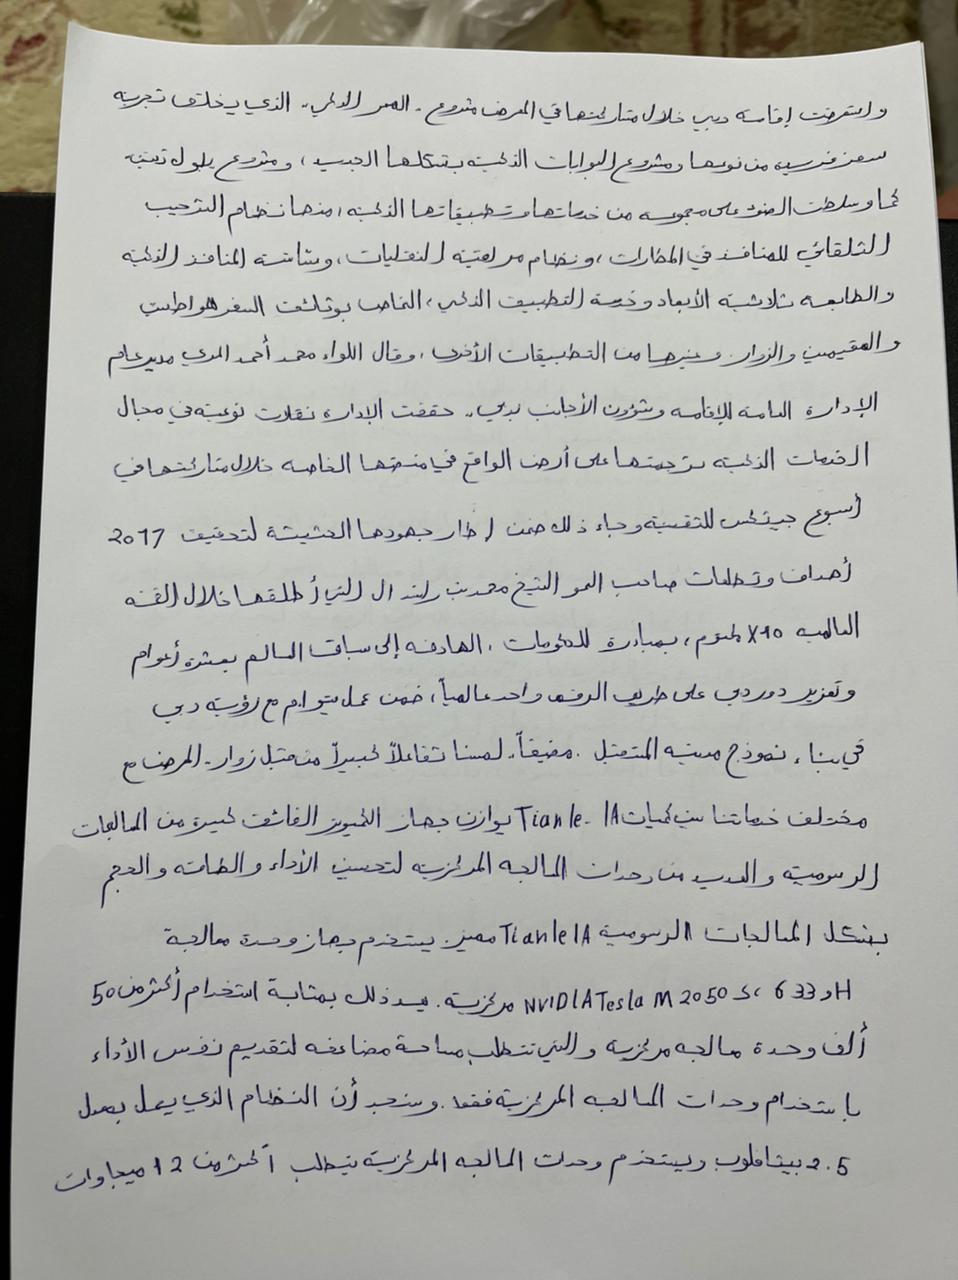 واستعرضت إقامة دبي خلال مشاركتها في المعرض مشروع - الممر الذكي - الذي يختلف تجربة
سفر فريدة من نوعها ومشروع البوابات الذكية بشكلها الجديد، ومشروع بلوك
كما وسلطت الضوء على مجموعة من خدماتها وتطبيقاتها الذكية، منها نظام الترحيب
التلقائي للمنافذ في المطارات، ونظام مراقبة النقليات، وشاشة المنافذ الذكية
والطابعة ثلاثية الأبعاد وخدمة التطبيق الذكي، الخاص بوثائق السفر
والمقيمين والزوار وغيرها من التطبيقات الأخرى، وقال اللواء محمد أحمد المري مدير عام
الإدارة العامة للإقامة وشؤون الأجانب بدبي - حققت الإدارة نقلات نوعية في مجال
الخدمات الذكية ترجمتها على أرض الواقع في منصتها الخاصة خلال مشاركتها في
أسبوع جيتكس للتقنية وجاء ذلك ضمن إطار جهودها الحثيثة لتحقيق 2017
أهداف وتطلعات صاحب السمو الشيخ محمد بن راشد ال التي أطلقها خلال القمة
العالمية X10 بمبادرة للحكومات، الهادفة إلى سباق العالم بعشرة أعوام
وتعزيز دور دبي على طريق الرقم واحد عالمياً، ضمن عمل يتوام مع رؤية دبي
في بناء نموذج مدينة المستقبل. مضيفاً- لمسنا تفاعلاً كبيراً من قبل زوار - المعرض مع
مختلف خدماتنا بين كميات Tianhe-IA يوازن جهاز الكمبيوتر الفائق كبيرة من المعالجات
الرسومية والعديد من وحدات المعالجة المركزية لتحسين الأداء والطاقة والحجم
بشكل المعالجات الرسومية Tianhe IA مميز يستخدم جهاز وحدة معالجة
H و 633 6 NVIDIA Tesla M2050 مركزية. يعد ذلك بمثابة استخدام أكثر من 50
ألف وحدة معالجة مركزية والتي تتطلب مساحة مضاعفة لتقديم نفس الأداء
باستخدام وحدات المعالجة المركزية فقط. وسنجد أن النظام الذي يعمل بمعدل
2.5 بيتافلوب ويستخدم وحدات المعالجة المركزية يتطلب أكثر من 12 ميجاوات